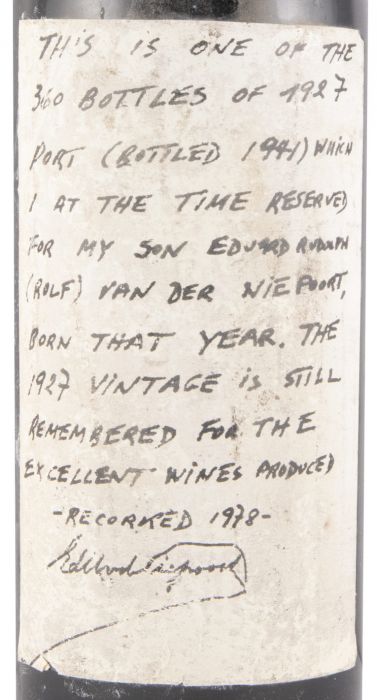 TH'S IS ONE OF THE
360 BOTTLES OF 1927
PORT (BOTTLED 1941) WHICH
I AT THE TIME RESERVED
FOR MY SON EDUARD RUDOLPH
(ROLF) VAN DER NIEPOORT,
BORN THAT YEAR. THE
1927 VINTAGE iS STILL
REMEMBERED FOR THE
EXCELLENT WINES PRODUCED
-RECORKED 1978-